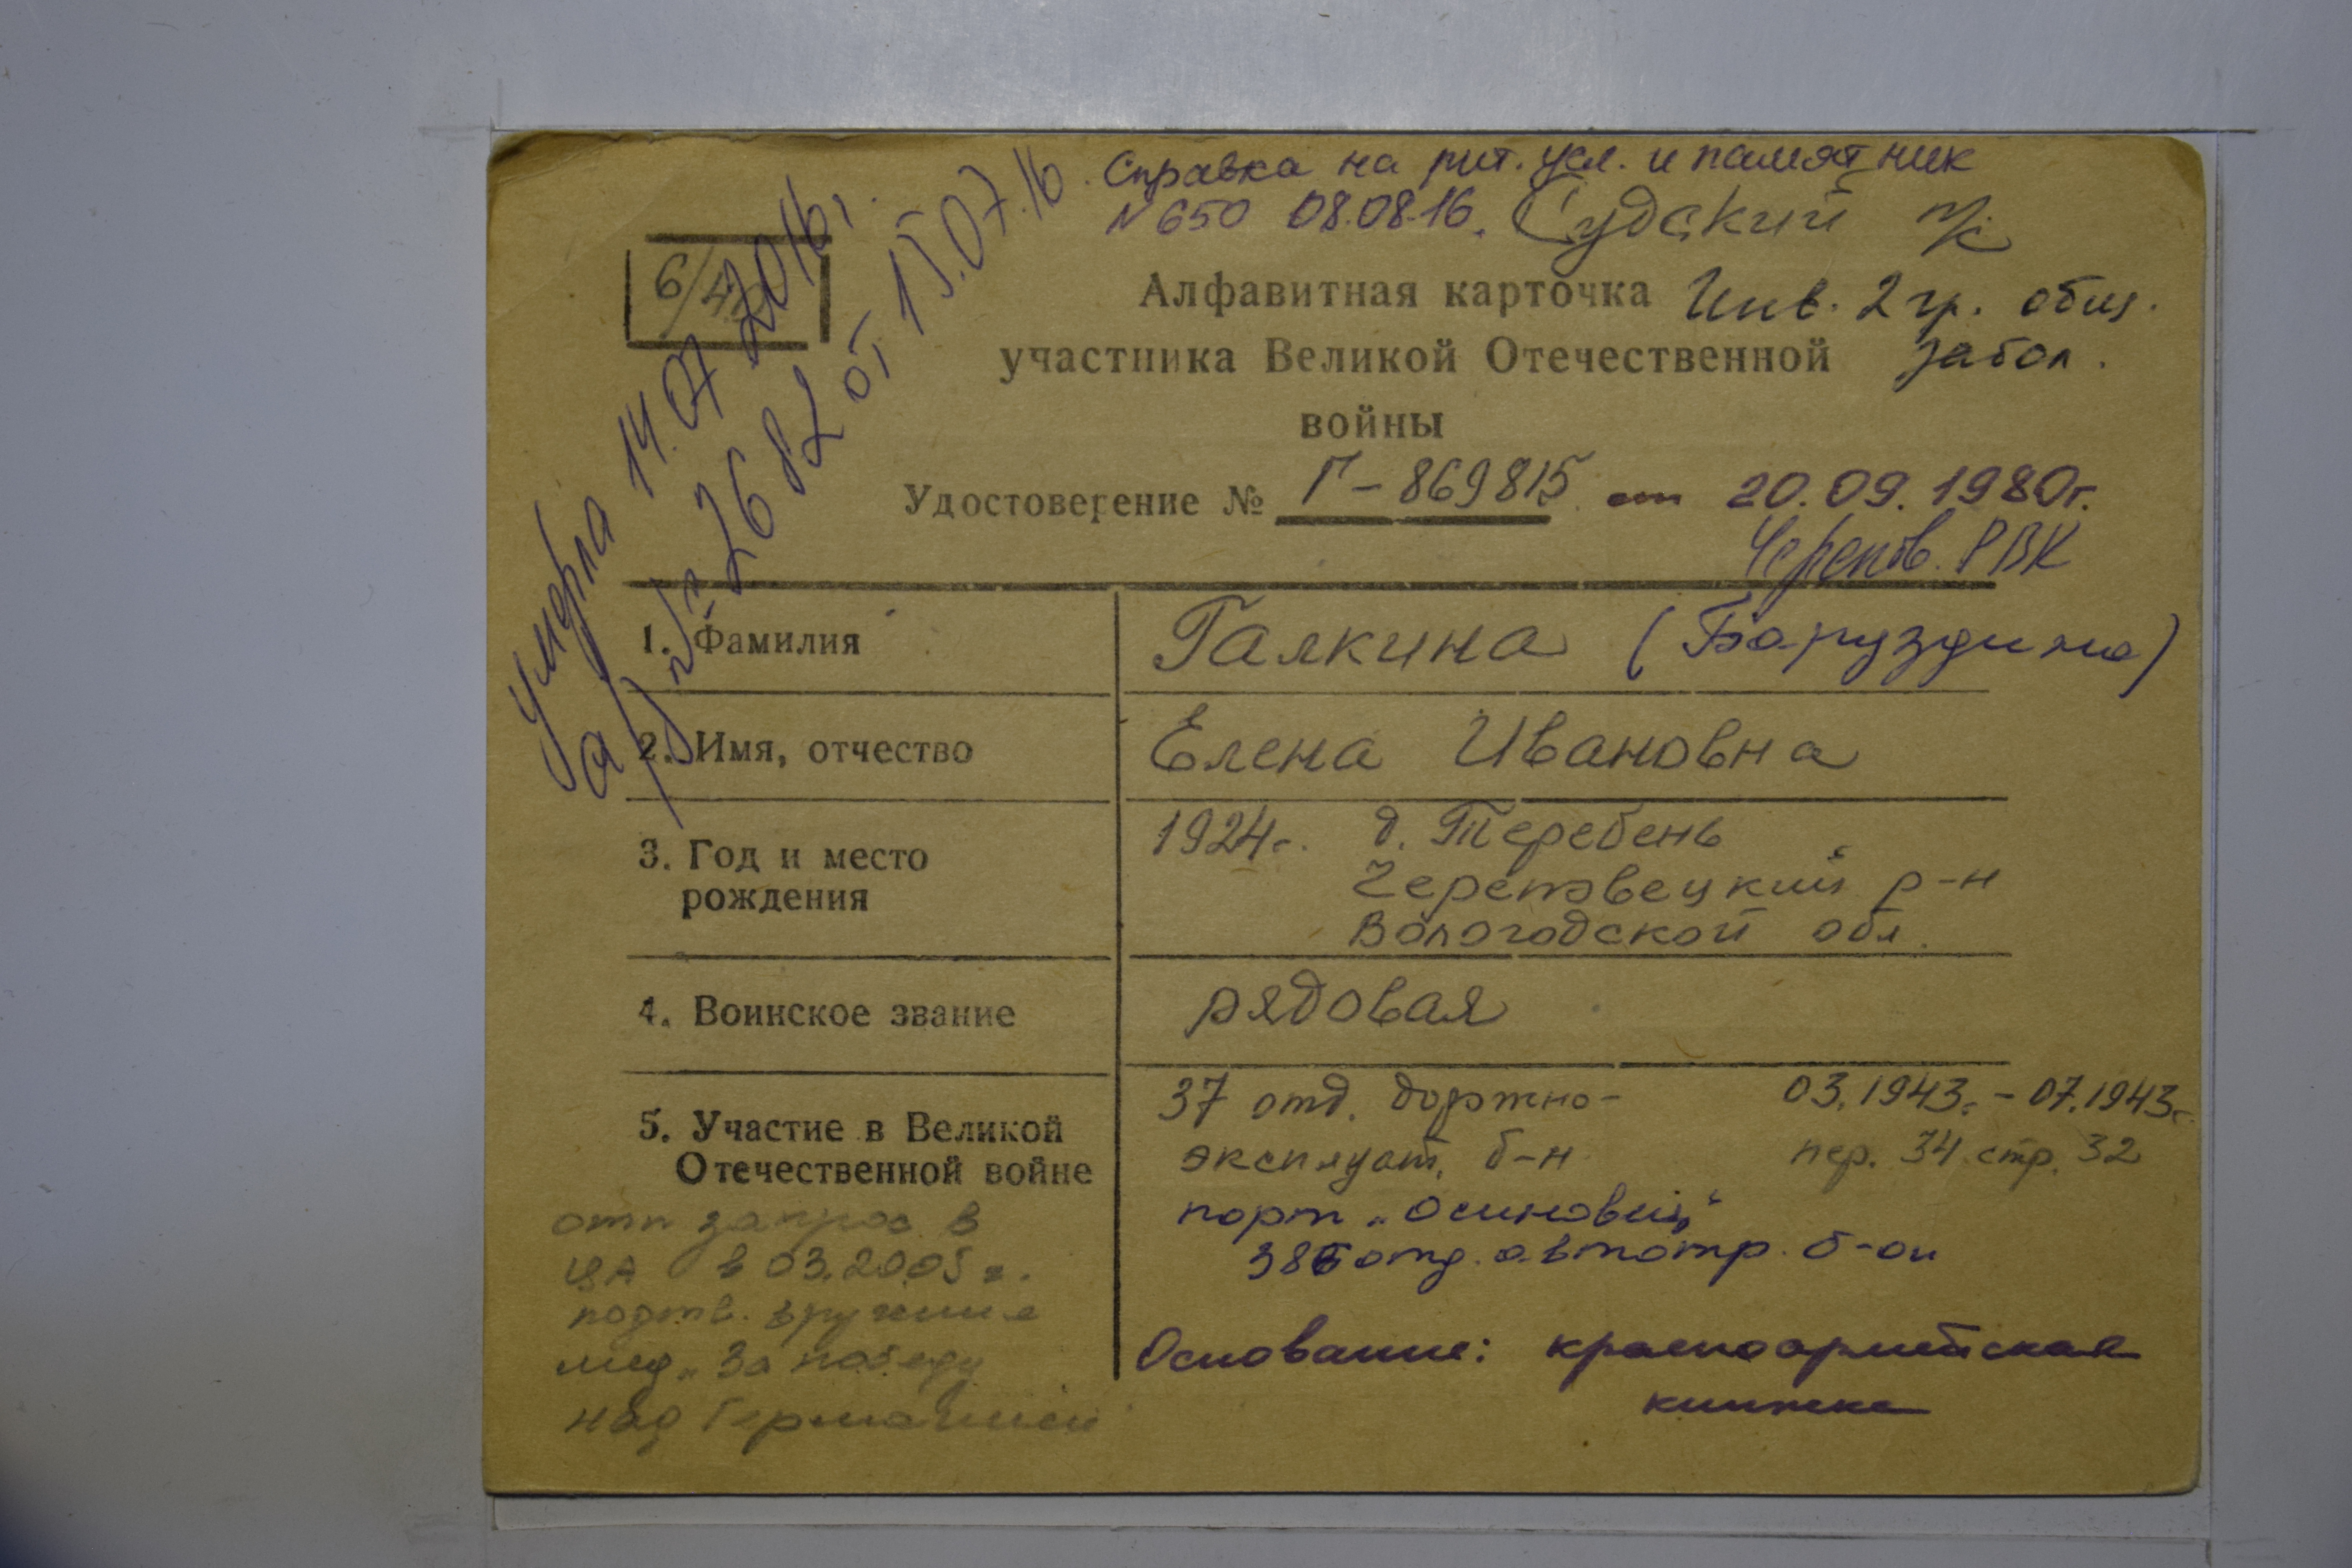 Справка на рит. усл. и памятник
N 650 08.08.16. Судский п/с
6/40
умерла 14.07 2016г.
а/з № 2682 от 15.07.16
Алфавитная карточка Инв. 2 гр. общ.
участника Великой Отечественной забол.
войны
Удостоверение № Г-869815 от 20.09.1980г.
Черепов. РВК
1. Фамилия Галкина (Баруздина)
2. Имя, отчество Елена Ивановна
3. Год и место рождения
1924г. д. Теребень
Череповецкий р-н
Вологодской обл.
4. Воинское звание рядовая
5. Участие в Великой
Отечественной войне
37 отд. дорожно- 03.1943г. - 07.1943г.
эксплуат. б-н пер. 34 стр. 32
порт „Осиновец"
386 отд. автотр. б-он
Основание: красноармейская
книжка
отп запрос в
ЦА в 03.2005 г.
подтв. вручения
мед „За победу
над Германией